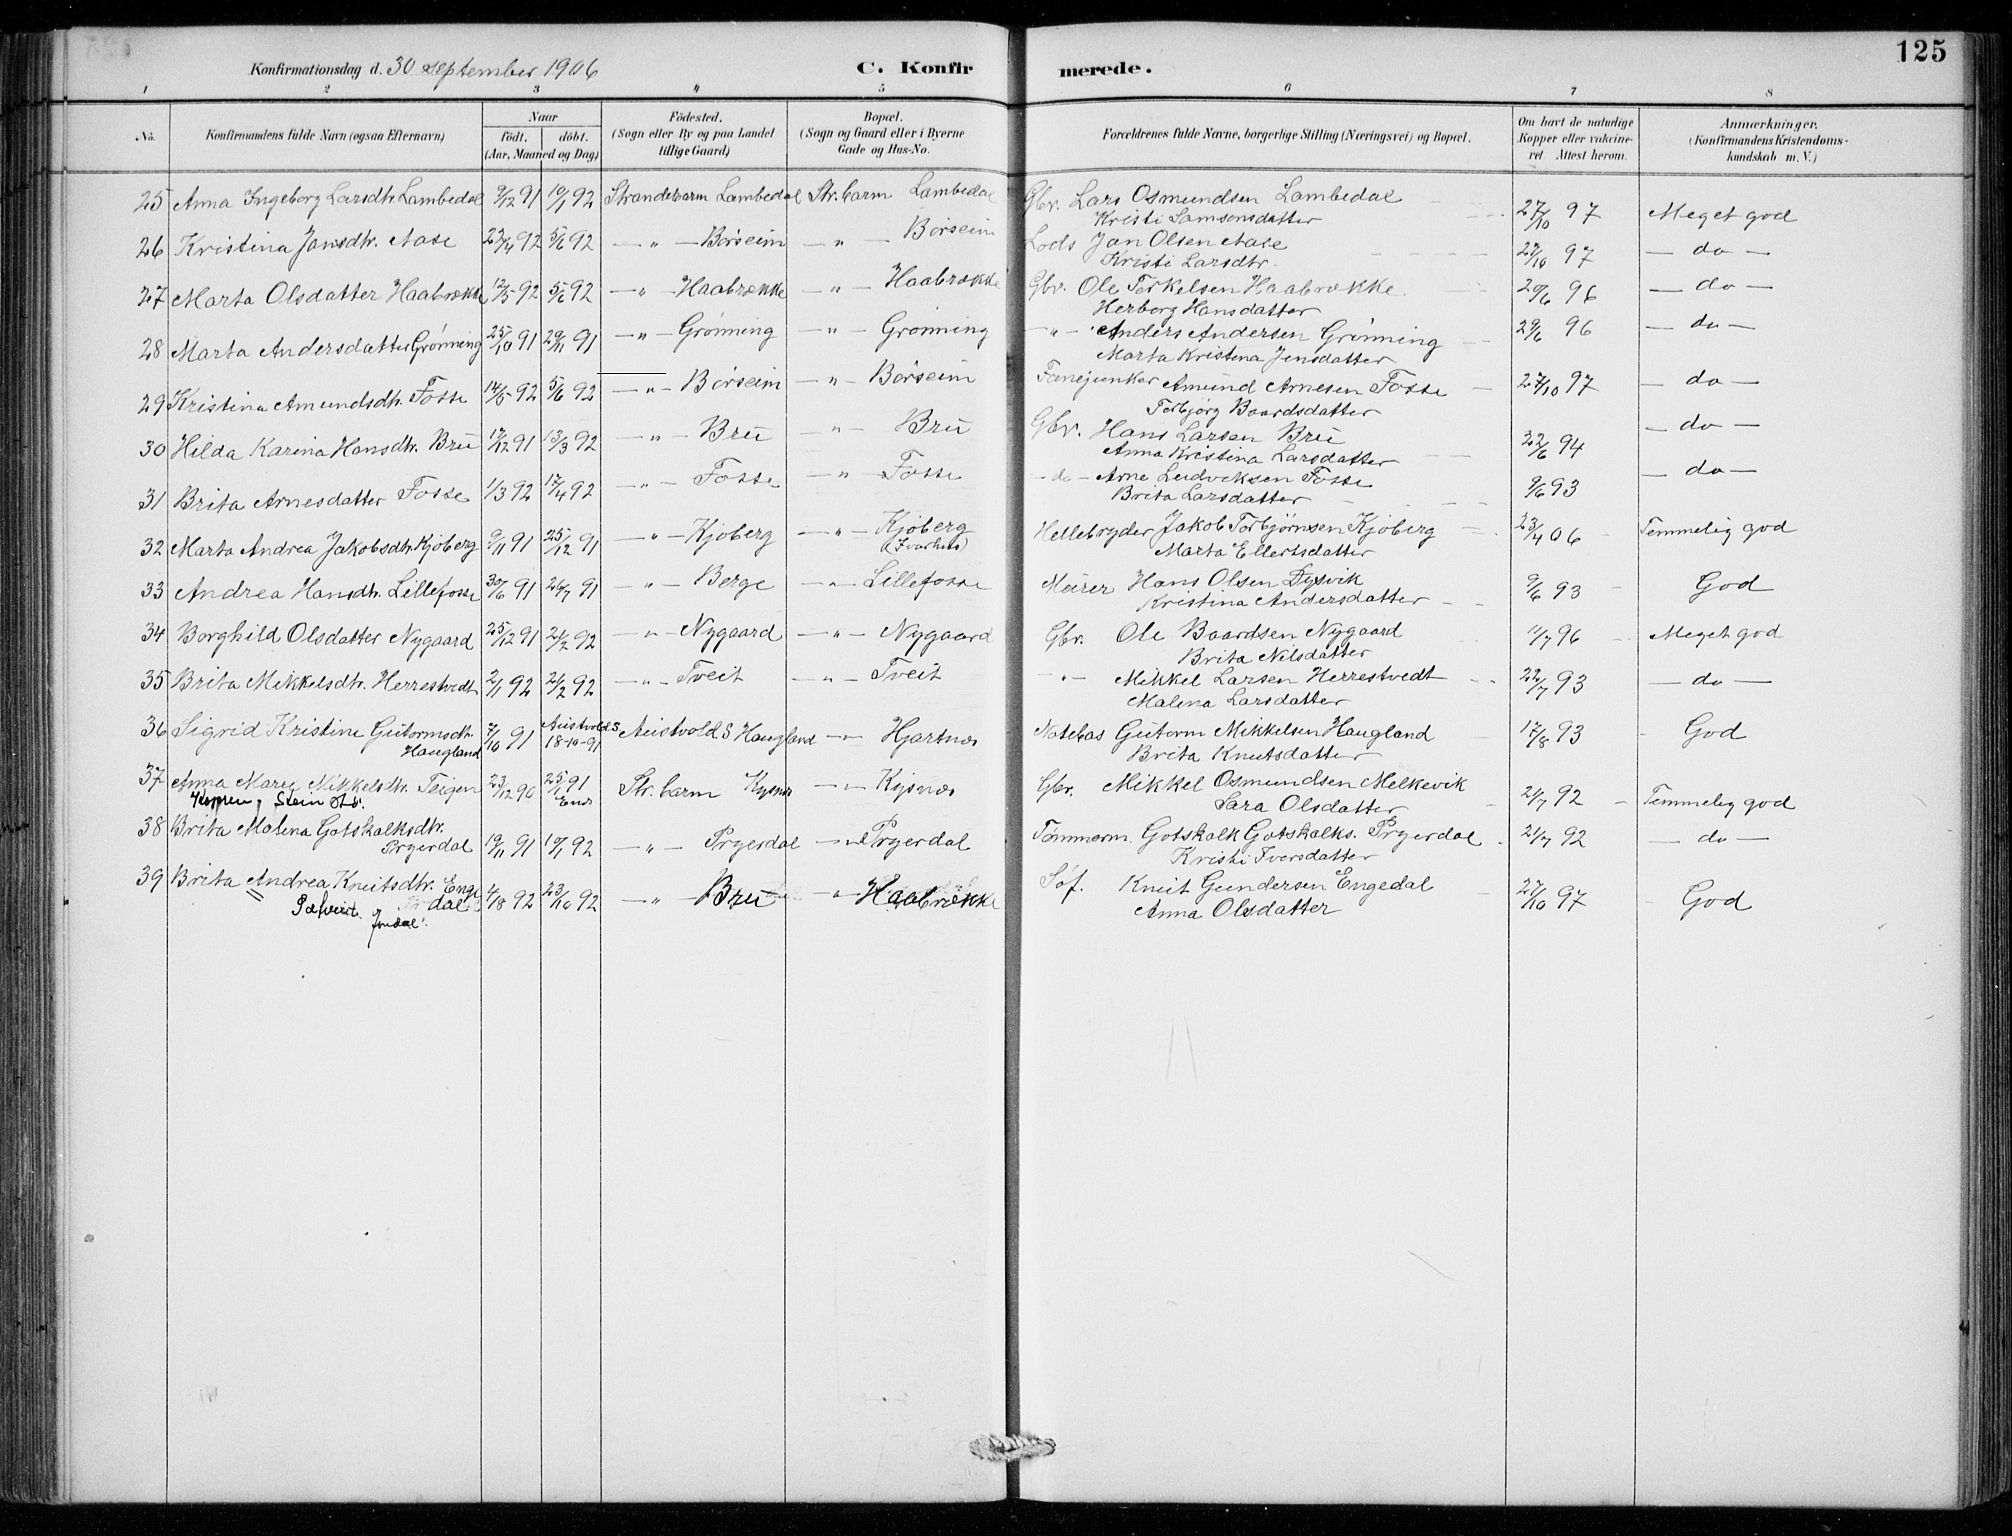 125
Konfirmationsdag d. 30 september 1906 C. Konfirmerede.
1 2 3 4 5 6 7 8
No. Konfirmandens fulde Navn (ogsaa Efternavn) Naar födt. döbt. (Aar, Maaned og Dag) Födested. (Sogn eller By og paa Landet tillige Gaard) Bopæl. (Sogn og Gaard eller i Byerne Gade og Hus-No. Forældrenes fulde Navne, borgerlige Stilling (Næringsvei) og Bopæl. Om havt de naturlige Kopper eller vakcineret Attest herom. Anmærkninger. (Konfirmandens Kristendomskundskab m. V.)
25 Anna Ingeborg Larsdtr. Lambedal 9/12 91 10/1 92 Strandebarm Lambedal Str.barm Lambedal Gbr. Lars Osmundsen Lambedal 27/10 97 Meget god
Kristi Samsonsdatter
26 Kristina Jansdtr. Aase 22/4 92 5/6 92 — " — Börseim — " — Börseim Lods Jan Olsen Aase 27/10 97 — do —
Kristi Larsdtr.
27 Marta Olsdatter Haabrække 12/5 92 5/6 92 — " — Haabrække — " — Haabrække Gbr. Ole Torkelsen Haabrække 29/6 96 — do —
Herborg Hansdatter
28 Marta Andersdatter Grönning 25/10 91 29/11 91 — " — Grönning — " — Grönning — " — Anders Andersen Grönning 29/6 96 — do —
Marta Kristina Jensdatter
29 Kristina Amundsdtr. Fosse 14/5 92 5/6 92 — " — Börseim — " — Börseim Fanejunker Amund Arnesen Fosse 27/10 97 — do —
Torbjørg Baardsdatter
30 Hilda Karina Hansdtr. Bru 17/12 91 13/3 92 — " — Bru — " — Bru Gbr. Hans Larsen Bru 22/6 94 — do —
Anna Kristina Larsdatter
31 Brita Arnesdatter Fosse 1/3 92 17/4 92 — " — Fosse — " — Fosse — do — Arne Ludveksen Fosse 9/6 93 — do —
Brita Larsdatter
32 Marta Andrea Jakobsdtr. Kjöberg 9/11 91 25/12 91 — " — Kjöberg — " — Kjöberg Hellebryder Jakob Torbjörnsen Kjöberg 23/4 06 Temmelig god
Marta Ellertsdatter
33 Andrea Hansdtr. Lillefosse 30/6 91 26/7 91 — " — Berge — " — Lillefosse Murer Hans Olsen Dysvik 9/6 93 God
Kristina Andersdatter
34 Borghild Olsdatter Nygaard 25/12 91 21/2 92 — " — Nygaard — " — Nygaard Gbr. Ole Baardsen Nygaard 11/7 96 Meget god
Brita Nilsdatter
35 Brita Mikkelsdtr. Herrestvedt 2/1 92 21/2 92 — " — Tveit — " — Tveit — " — Mikkel Larsen Herrestvedt 22/7 93 — do —
Malena Larsdatter
36 Sigrid Kristine Gutormsdtr. Haugland 7/10 91 Austvold S 18-10-91 Austvold S Haugland — " — Hjartnes Notebas Gutorm Mikkelsen Haugland 17/8 93 God
Brita Knutsdatter
37 Anna Marie Mikkelsdtr. Teigen 23/12 90 25/1 91 Str.barm Kysnes — " — Kysnes Gbr. Mikkel Osmundsen Melkevik 21/7 92 Temmelig god
Sara Olsdatter
38 Brita Malena Gotskalksdtr. Pryerdal 19/11 91 10/1 92 — " — Pryerdal — " — Pryerdal Tømmerm. Gotskalk Gotskalks. Pryerdal 21/7 92 — do —
Kristi Iversdatter
39 Brita Andrea Knutsdtr. Engedal 4/8 92 23/10 92 — " — Bru — " — Haabrække Søf. Knut Gundersen Engedal 27/10 97 God
Anna Olsdatter